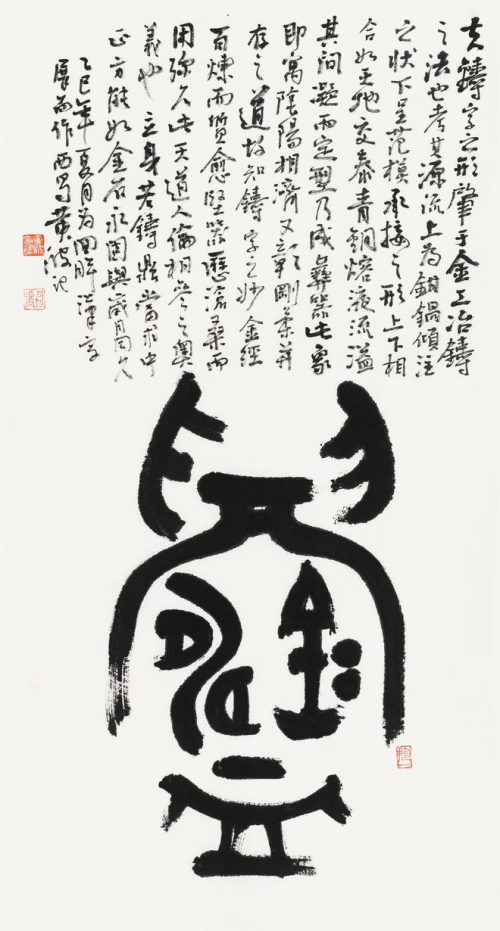 夫鑄字之形肇于金工冶鑄
之法也考其源流上為鉗鍋傾注
之狀下呈范模承接之形上下相
合如天地交泰青銅熔液流溢
其间凝而定型乃成彝器此象
即寓陰陽相濟又剛柔并
存之道故知鑄字之妙金經
百煉而質愈堅器歷滄桑而
用弥久此天道人倫相參之奥
義也立身若鑄鼎當求中
正方能如金石永固與歲月同久
乙巳年夏月為解漢字
展而作西蜀黄波记
鑄